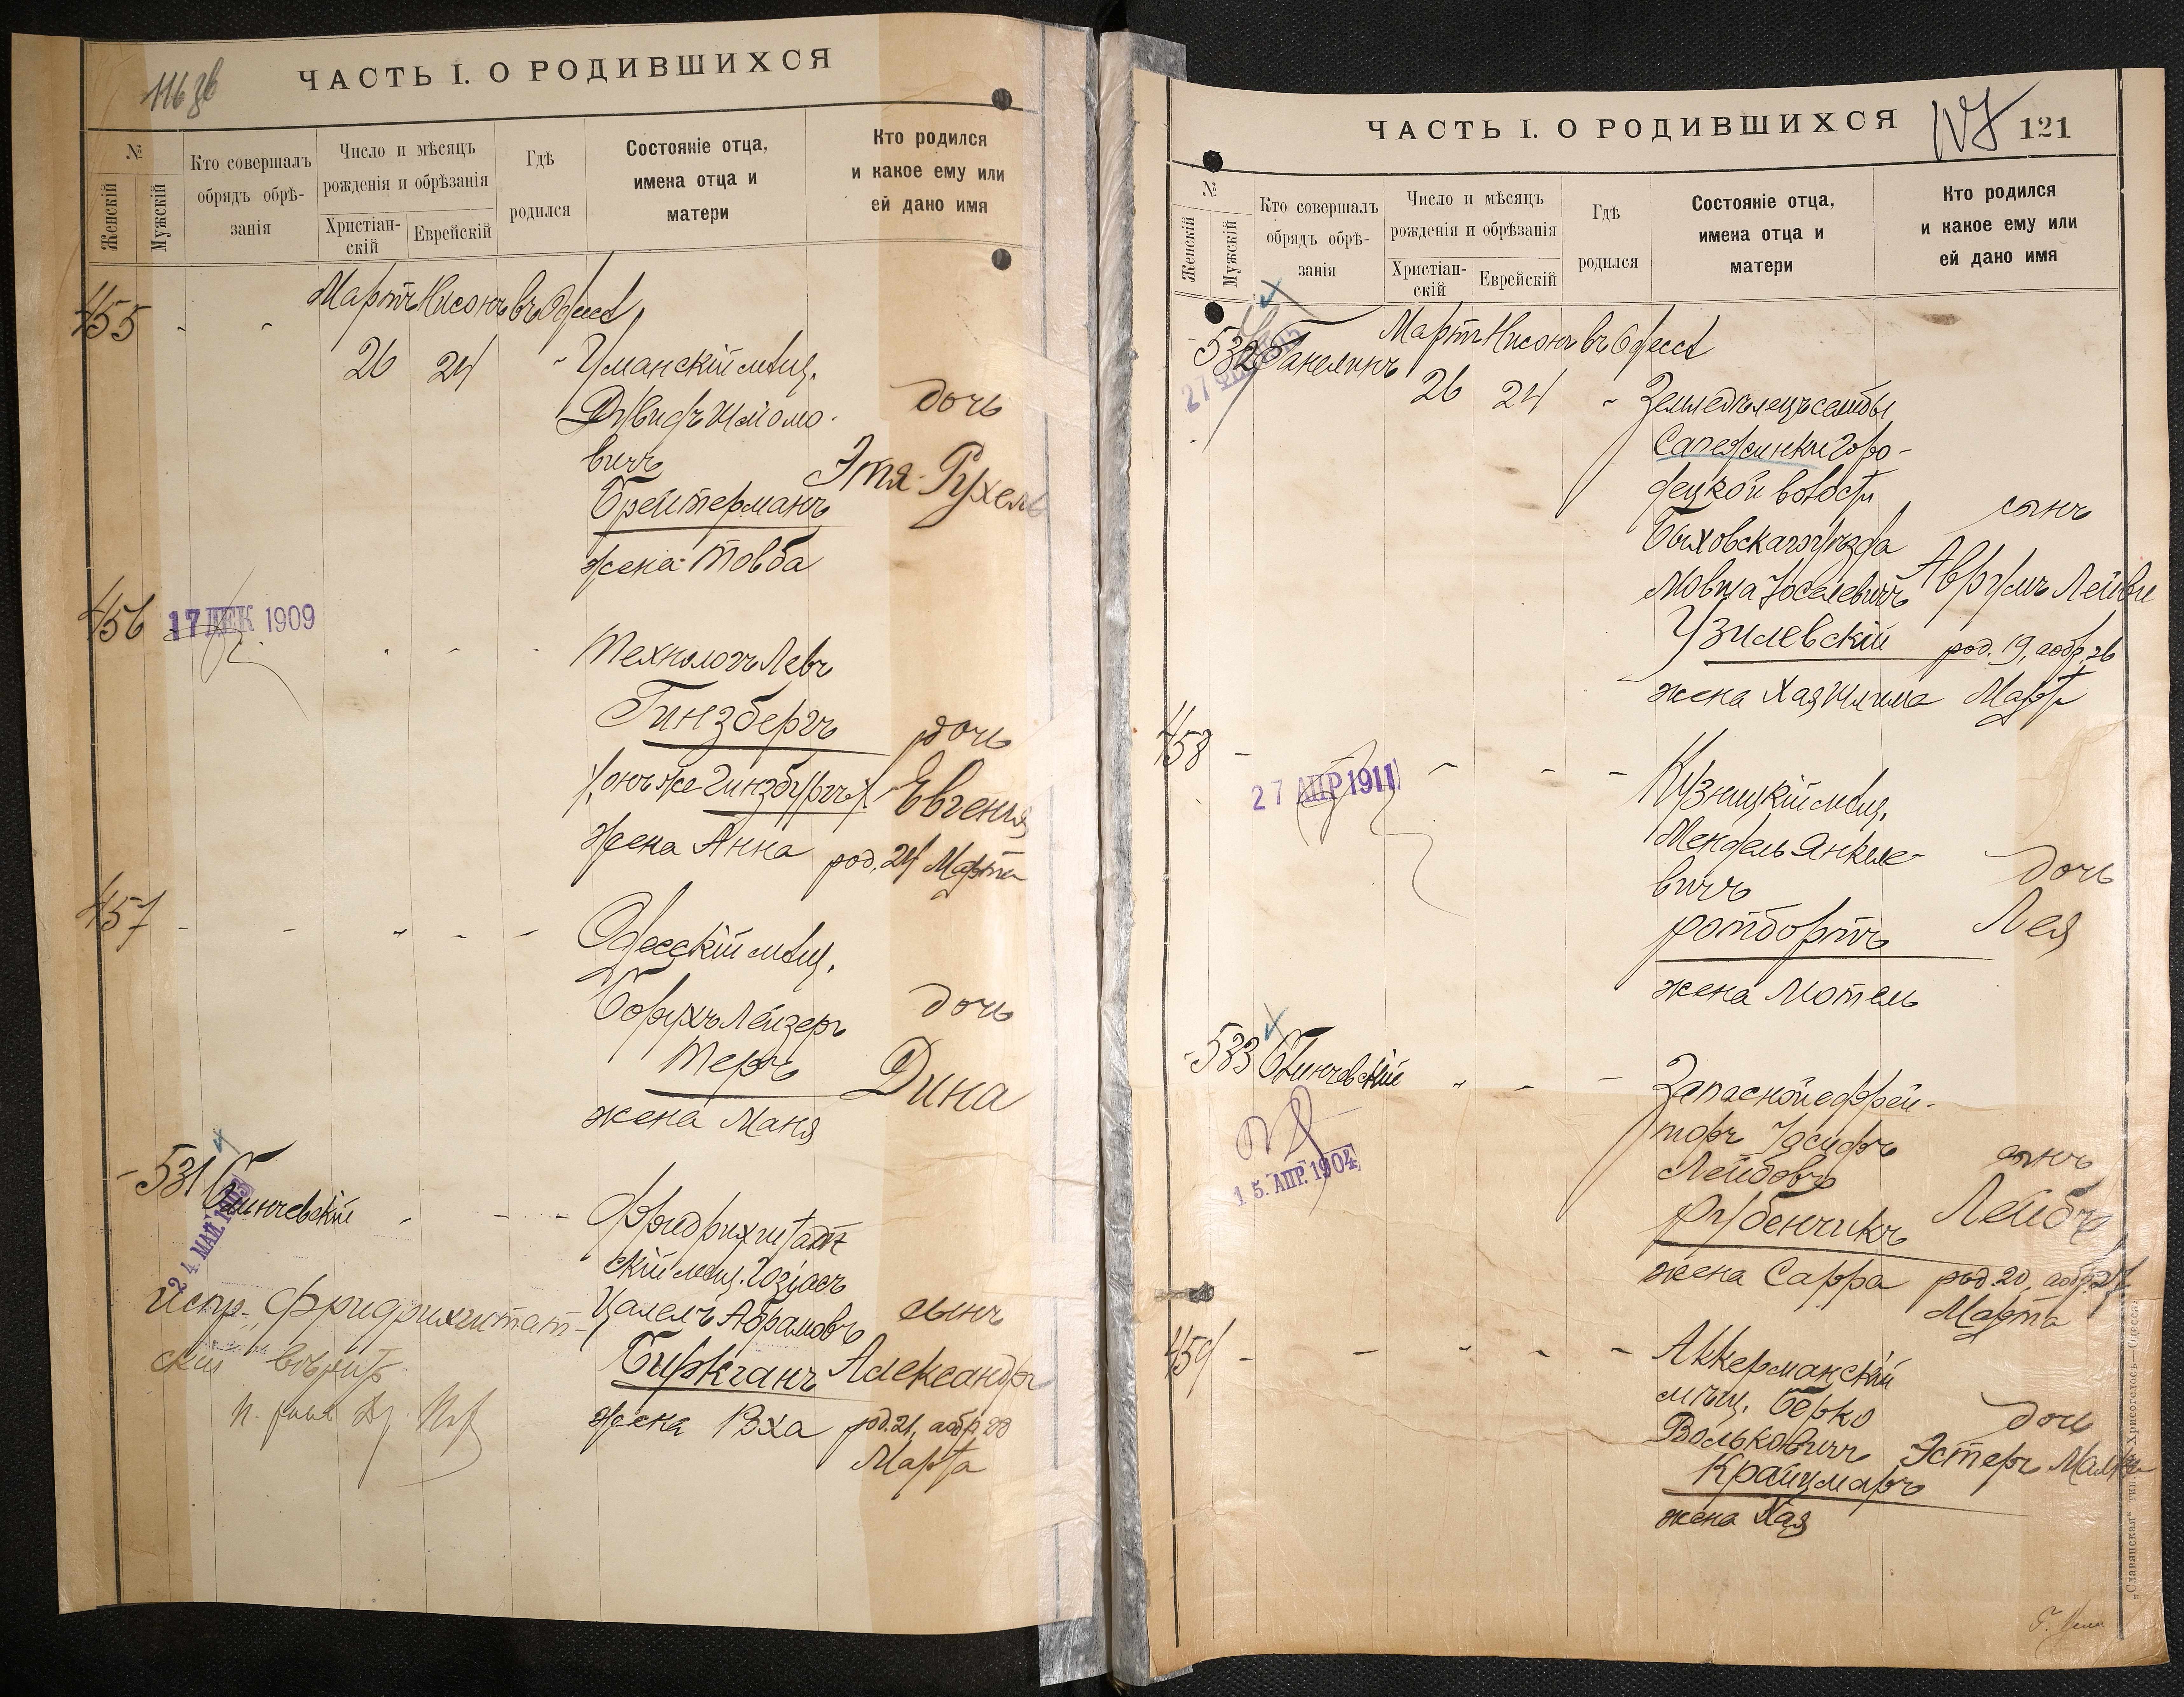 116 зв
ЧАСТЬ I. О РОДИВШИХСЯ
№
Женскій
Мужскій
Кто совершалъ
обрядъ обрѣ-
занія
Число и мѣсяцъ
рожденія и обрѣзанія
Христіан-
скій
Еврейскій
Гдѣ
родился
Состояніе отца,
имена отца и
матери
Кто родился
и какое ему или
ей дано имя
455 - - Мартъ Нисонъ въ Одессѣ
26 24 - Уманскій мѣщ.
Дувидъ Шлiомо-
вичъ
Брейтерманъ
жена Товба
дочь
Этя-Рухель
456
17 ДЕК 1909
Технологъ Левъ
Гинзбергъ
(онъ же Гинзбургъ)
жена Анна
дочь
Евгенія
род. 24 Марта
457 - - - - -
Одесскій мѣщ.
Борухъ Лейзеръ
Теръ
жена Маня
дочь
Дина
- 531
24 МАЙ 1903
Фридрихштадт
скій мѣщ.
Цалелъ Абрамовъ
Биркганъ
жена Вха
сынъ
Александръ
род. 21, аобр. 28
Марта
Испр. Фридрихштат-
скій вѣрить
ЧАСТЬ I. О РОДИВШИХСЯ
121
№
Женскій
Мужскій
Кто совершалъ
обрядъ обрѣ-
занія
Число и мѣсяцъ
рожденія и обрѣзанія
Христіан-
скій
Еврейскій
Гдѣ
родился
Состояніе отца,
имена отца и
матери
Кто родился
и какое ему или
ей дано имя
- 532 Ганелинъ Мартъ Нисонъ въ Одессѣ
26 24 - Земледѣлецъ
Сапежинки Горо-
децкой волости
Быховскаго уѣзда
Мовша Іоселевичъ
Узилевскій
жена Хая Шлима
сынъ
Аврумъ Лейви
род. 19, аобр. 26
Март
458 - - - -
27 АПР 1911
Кузницкій мѣщ.
Мендель Янкеле-
вичъ
Ротбортъ
жена Мотель
дочь
Лея
- 533
15. АПР. 1904
Запасной ефрей-
торъ Іосифъ
Лейбовъ
Рубенчикъ
жена Сарра
сынъ
Лейбъ
род. 20, аобр. 27
Марта
459 - - - - -
Аккерманскій
мѣщ. Берко
Вольковичъ
Крайцмаръ
жена Хая
дочь
Эстеръ Малка
„Славянская“ тип. Н. Хрисогелосъ—Одесса.